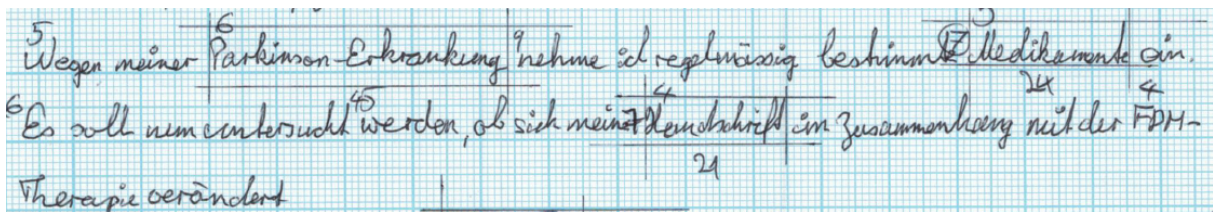 Wegen meiner Parkinson-Erkrankung nehme ich regelmässig bestimmte Medikamente ein.
Es soll nun untersucht werden, ob sich meine Handschrift im Zusammenhang mit der FDM-
Therapie verändert